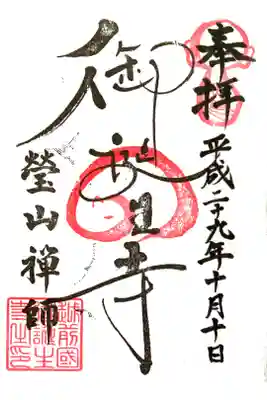 奉拝
平成二十九年十月十日
御誕生寺
瑩山禪師
越前國